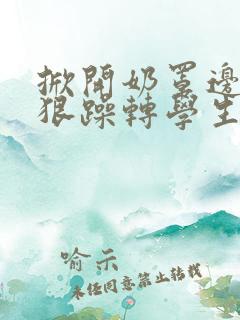 掀開奶罩邊
狠躁轉學生
喻示
未经同意禁止转载